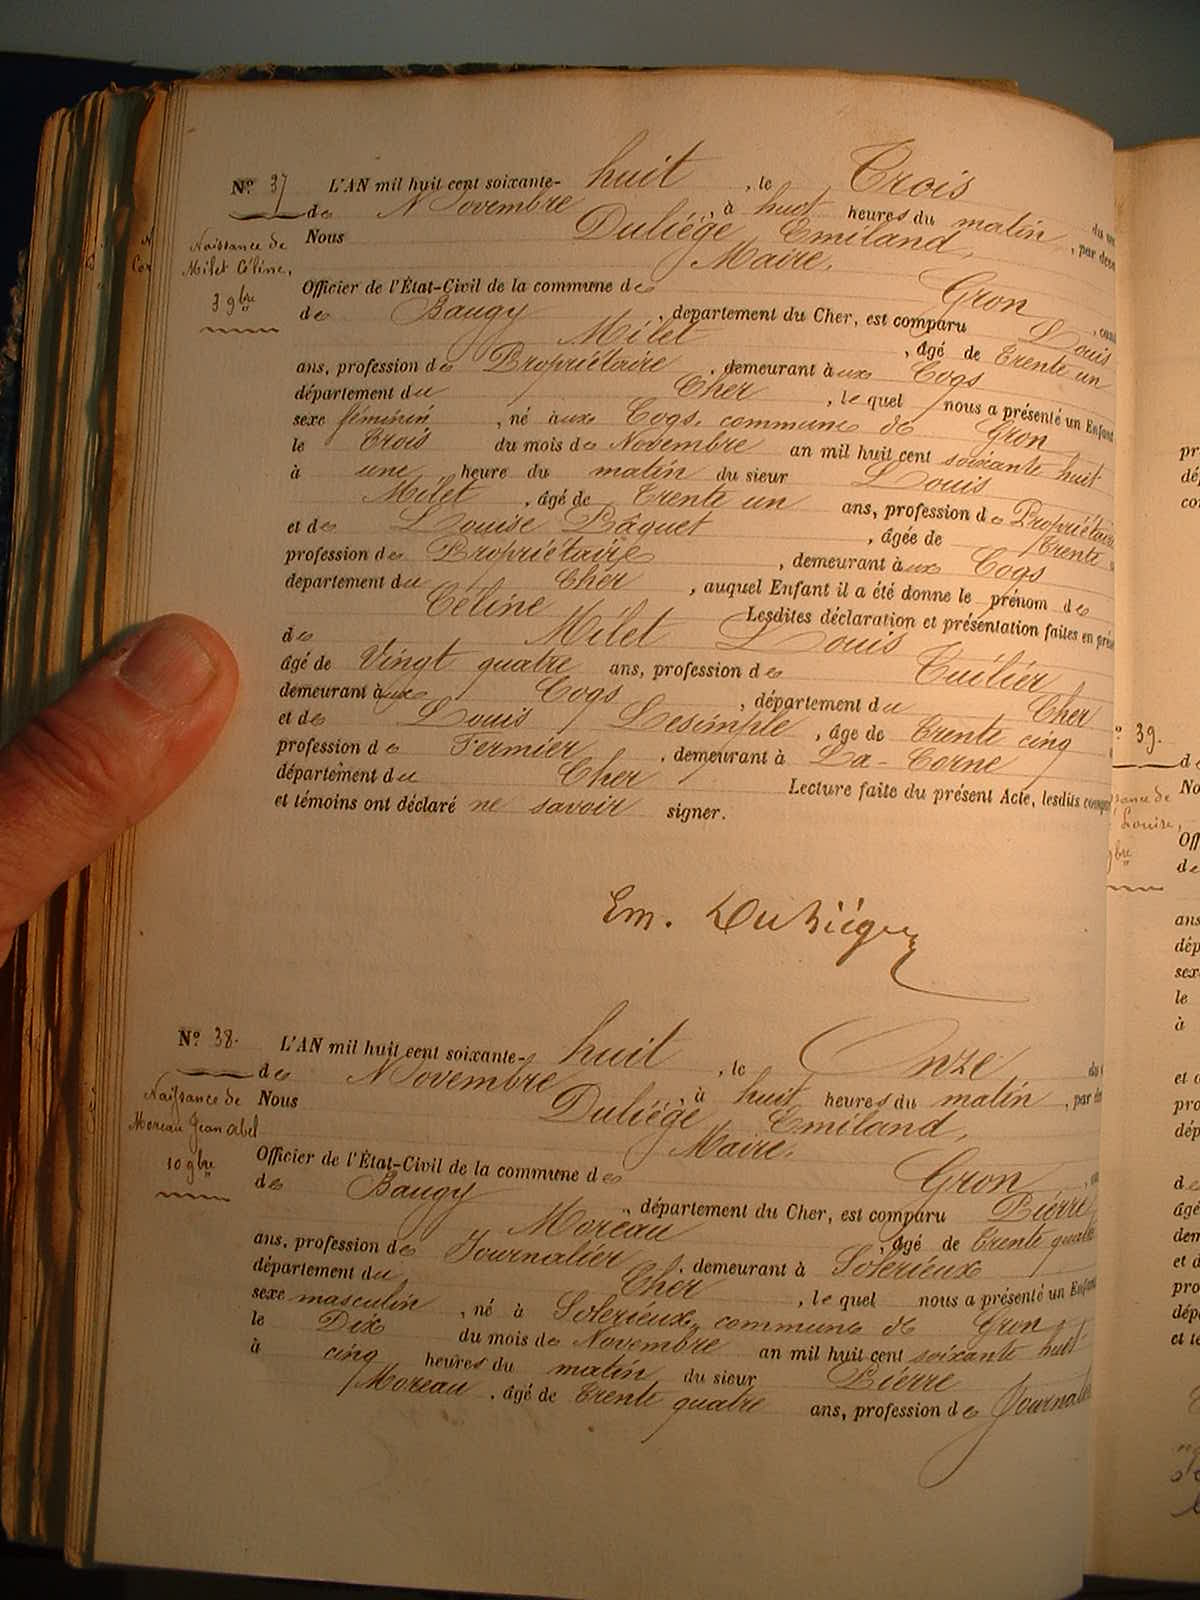 Nº 37 L'AN mil huit cent soixante- huit , le Trois
de Novembre , à huit heures du matin , par
Nous Duliége Emiland,
Maire.
Naissance de
Milet Céline,
3 9bre
Officier de l'État-Civil de la commune de Gron
de Baugy , département du Cher, est comparu Louis
Milet , âgé de Trente un
ans, profession de Propriétaire , demeurant aux Cogs
département du Cher , le quel nous a présenté un Enfant
sexe féminin , né aux Cogs, commune de Gron
le Trois du mois de Novembre an mil huit cent soixante huit
à une heure du matin du sieur Louis
Milet , âgé de Trente un ans, profession de Propriétaire
et de Louise Pâquet , âgée de Trente
profession de Propriétaire , demeurant aux Cogs
département du Cher , auquel Enfant il a été donné le prénom de
Céline Lesdites déclaration et présentation faites en
de Milet Louis
âgé de Vingt quatre ans, profession de Tuilier
demeurant aux Cogs , département du Cher
et de Louis Lesimple , âgé de Trente cinq
profession de Fermier , demeurant à La-Corne
département du Cher Lecture faite du présent Acte, lesdits
et témoins ont déclaré ne savoir signer.
Em. Duliége
Nº 38. L'AN mil huit cent soixante- huit , le Onze
de Novembre , à huit heures du matin , par
Nous Duliége Emiland,
Maire.
Naissance de
Moreau Jean Abel
10 9bre
Officier de l'État-Civil de la commune de Gron
de Baugy , département du Cher, est comparu Pierre
Moreau , âgé de Trente quatre
ans, profession de Journalier , demeurant à Solerieux
département du Cher , le quel nous a présenté un Enfant
sexe masculin , né à Solerieux, commune de Gron
le Dix du mois de Novembre an mil huit cent soixante huit
à cinq heures du matin du sieur Pierre
Moreau , âgé de Trente quatre ans, profession de Journalier
º 39.
Louise,